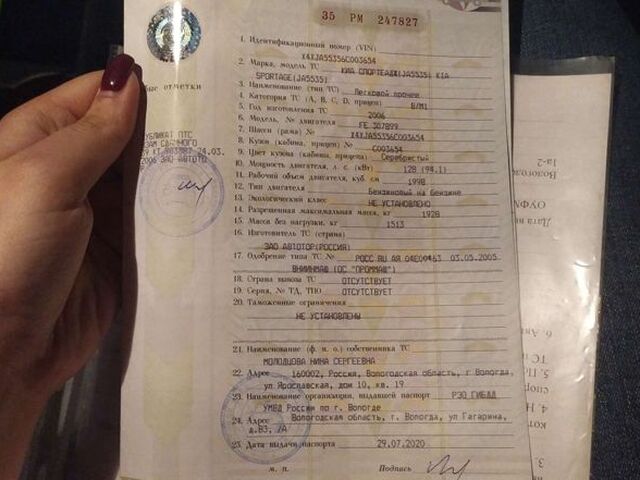 35 РМ 247827
1. Идентификационный номер (VIN)
X4XJA55356C003654
2. Марка, модель ТС КИА СПОРТЕАДЖ(JA5535) KIA
SPORTAGE(JA5535)
3. Наименование (тип ТС) Легковой прочее
4. Категория ТС (А, В, С, D, прицеп) B/M1
5. Год изготовления ТС 2006
6. Модель, № двигателя FE 307899
7. Шасси (рама) № X4XJA55356C003654
8. Кузов (кабина, прицеп) № C003654
9. Цвет кузова (кабины, прицепа) Серебристый
10. Мощность двигателя, л. с. (кВт) 128 (94.1)
11. Рабочий объем двигателя, куб. см 1998
12. Тип двигателя Бензиновый на бензине
13. Экологический класс НЕ УСТАНОВЛЕНО
14. Разрешенная максимальная масса, кг 1928
15. Масса без нагрузки, кг 1513
16. Изготовитель ТС (страна)
ЗАО АВТОТОР(РОССИЯ)
17. Одобрение типа ТС № РОСС RU АЯ 04Е00463 03.05.2005
ВНИИНМАШ (ОС "ПРОММАШ")
18. Страна вывоза ТС ОТСУТСТВУЕТ
19. Серия, № ТД, ТПО ОТСУТСТВУЕТ
20. Таможенные ограничения
НЕ УСТАНОВЛЕНЫ
21. Наименование (ф. и. о.) собственника ТС
МОЛОДЦОВА НИНА СЕРГЕЕВНА
22. Адрес 160002, Россия, Вологодская область, г Вологда,
ул Ярославская, дом 10, кв. 19
23. Наименование организации, выдавшей паспорт РЭО ГИБДД
УМВД России по г. Вологде
24. Адрес Вологодская область, г. Вологда, ул Гагарина,
д.83, 2А
25. Дата выдачи паспорта 29.07.2020
м. п. Подпись
ые отметки
УБЛИКАТ ПТС
ЗАО АВТОТО
Вологод
1а-2
ОУФМ
Дата
6.
5.
ТС
4. Н
3.